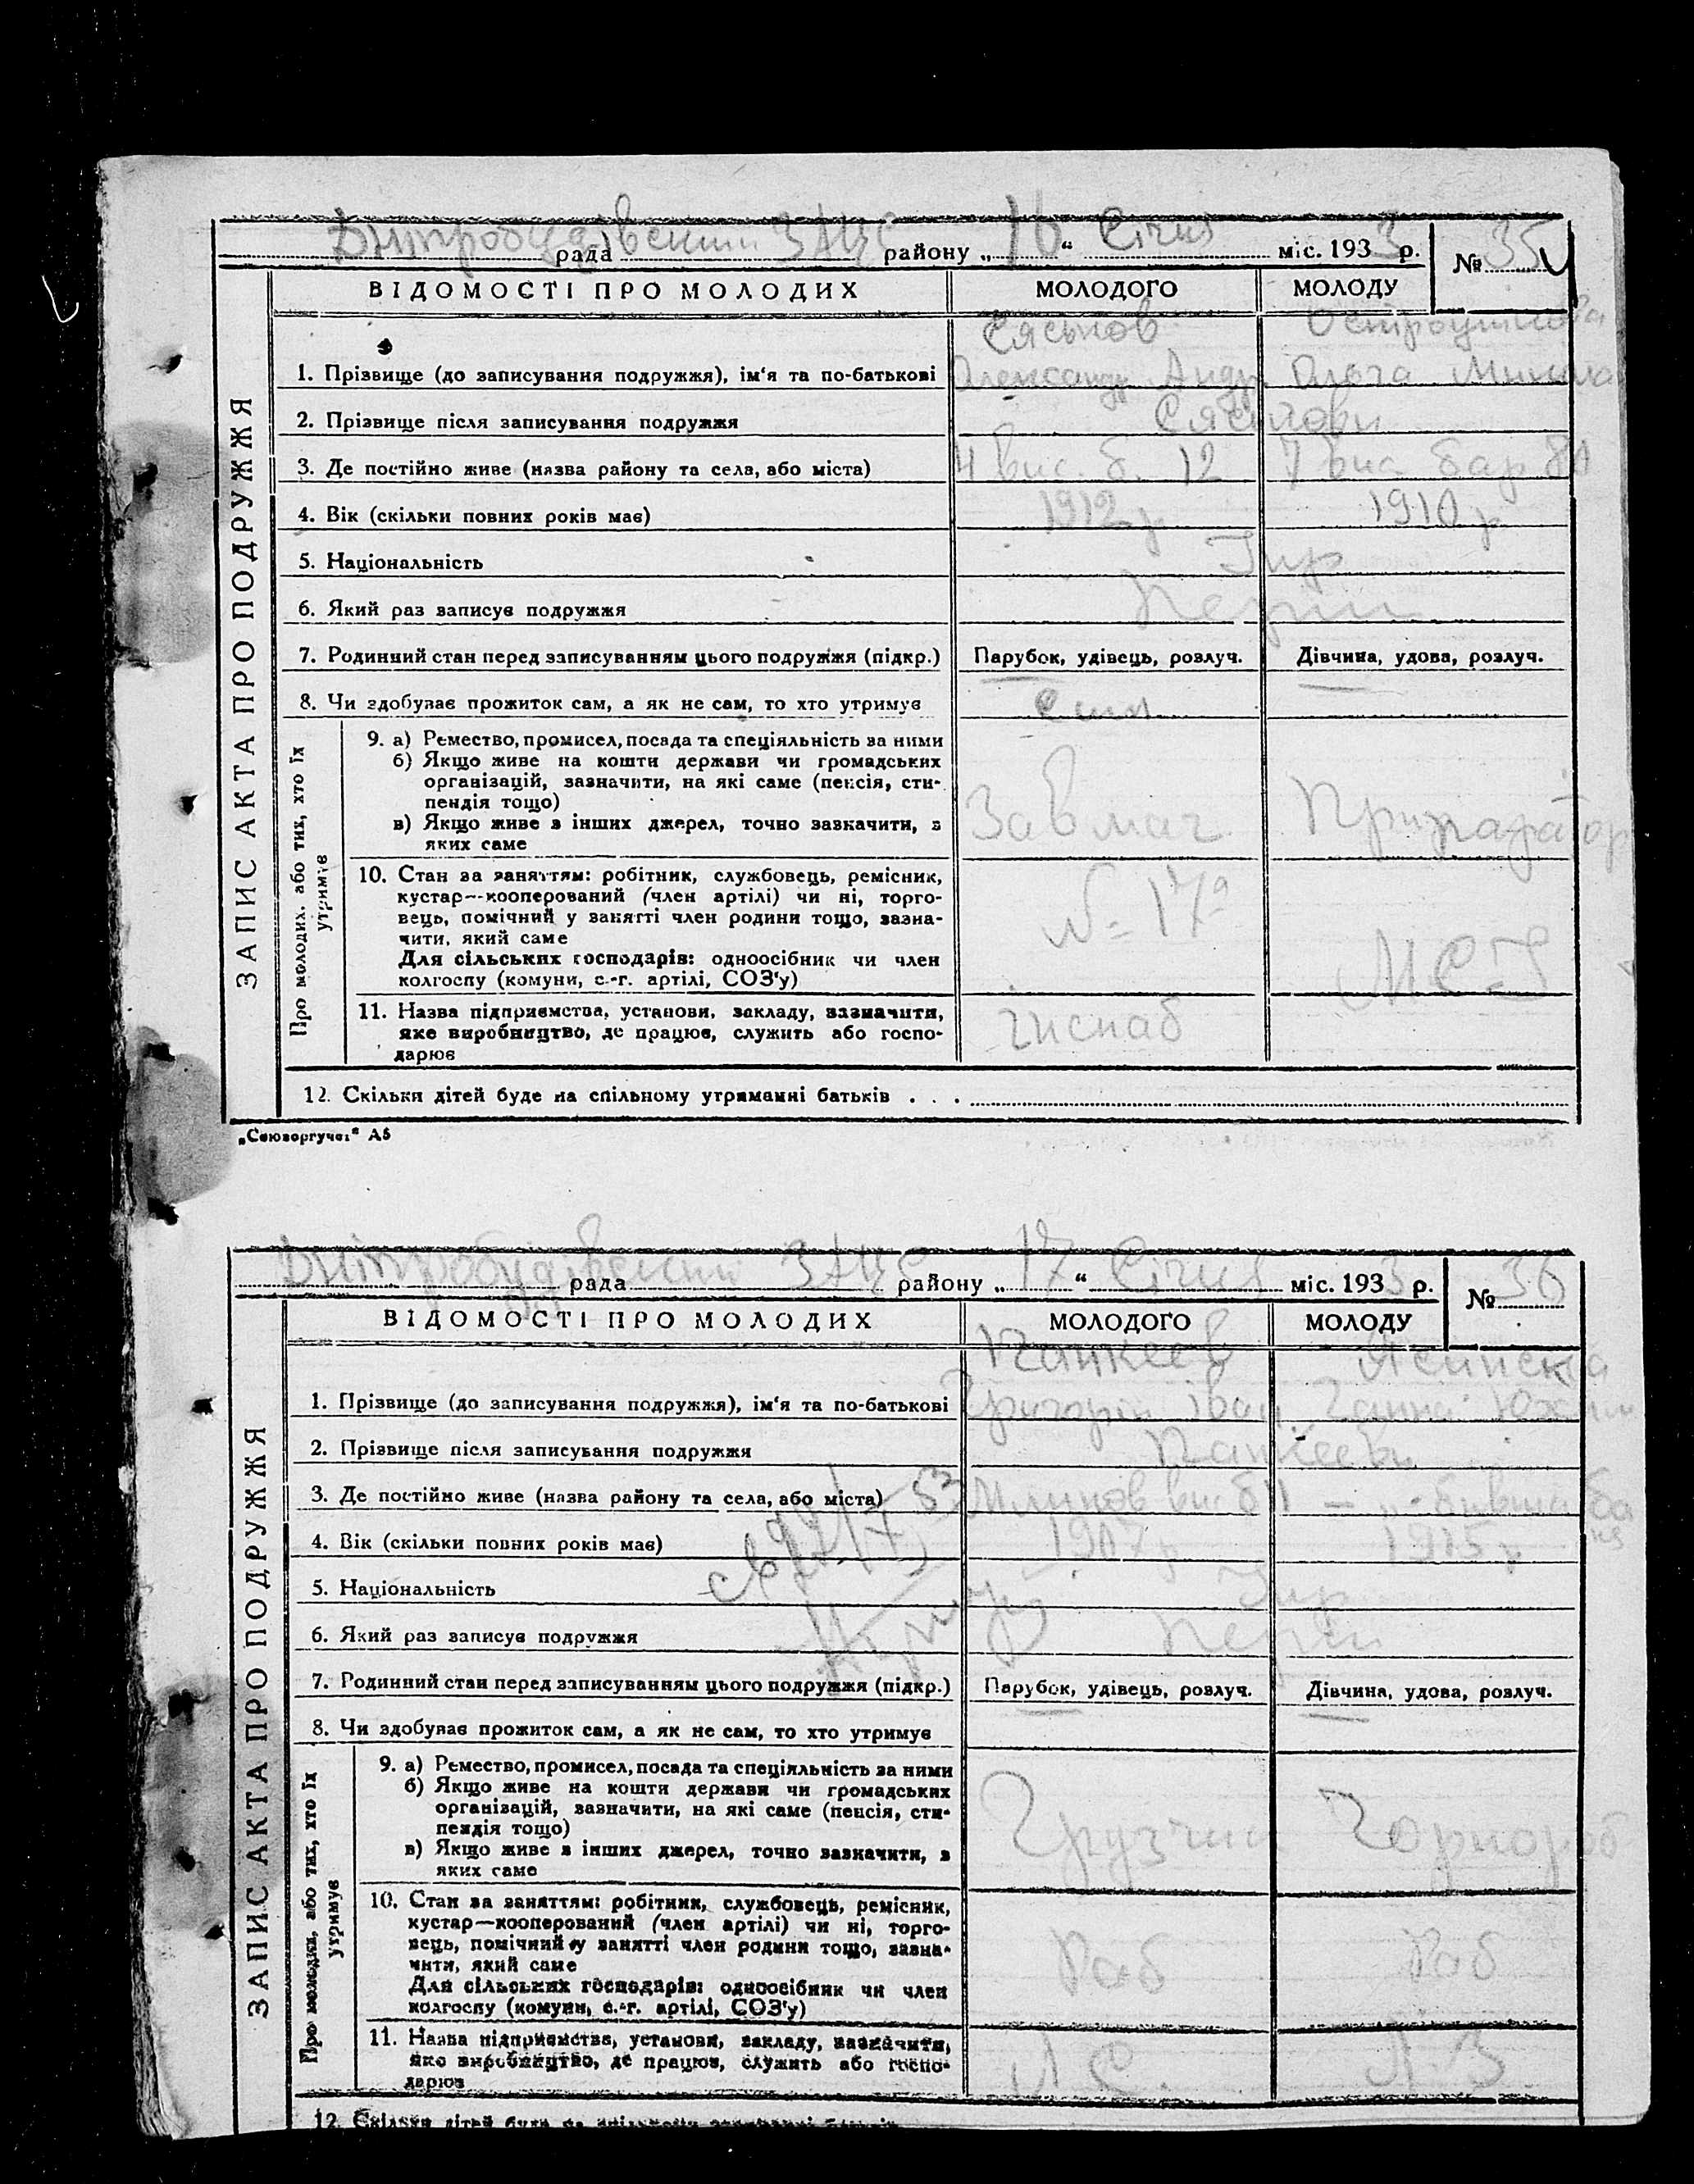 Дніпробудівський ЗАЦС рада району „16“ Січня міс. 1933 р. № 35
ВІДОМОСТІ ПРО МОЛОДИХ МОЛОДОГО МОЛОДУ
ЗАПИС АКТА ПРО ПОДРУЖЖЯ
1. Прізвище (до записування подружжя), ім‘я та по-батькові Олександр Андр Ольга Микола
2. Прізвище після записування подружжя
3. Де постійно живе (назва району та села, або міста) 4 вис. б. 12 7 вис бар 80
4. Вік (скільки повних років має) 1912 р 1910 р
5. Національність Укр
6. Який раз записує подружжя Перш
7. Родинний стан перед записуванням цього подружжя (підкр.) Парубок, удівець, розлуч. Дівчина, удова, розлуч.
8. Чи здобуває прожиток сам, а як не сам, то хто утримує
Про молодих, або тих, хто їх утримує
9. а) Ремество, промисел, посада та спеціяльність за ними
б) Якщо живе на кошти держави чи громадських
організацій, зазначити, на які саме (пенсія, сти-
пендія тощо)
в) Якщо живе з інших джерел, точно зазначити, з
яких саме
Завмаг
10. Стан за заняттям: робітник, службовець, ремісник,
кустар—кооперований (член артілі) чи ні, торго-
вець, помічний у занятті член родини тощо, зазна-
чити, який саме
Для сільських господарів: одноосібник чи член
колгоспу (комуни, с.-г. артілі, СОЗ‘у)
№ 17а
11. Назва підприємства, установи, закладу, зазначити,
яке виробництво, де працює, служить або госпо-
дарює
12. Скільки дітей буде на спільному утриманні батьків . . .
„Союзоргучет“ А5
Дніпробудівський ЗАЦС рада району „17“ Січня міс. 1933 р. № 36
ВІДОМОСТІ ПРО МОЛОДИХ МОЛОДОГО МОЛОДУ
ЗАПИС АКТА ПРО ПОДРУЖЖЯ
Панкеєв Ясинска
1. Прізвище (до записування подружжя), ім‘я та по-батькові Григорій Іван Ганна
2. Прізвище після записування подружжя Панкеєви
3. Де постійно живе (назва району та села, або міста)
4. Вік (скільки повних років має) 1907 р 1915 р
5. Національність Укр
6. Який раз записує подружжя Перш
7. Родинний стан перед записуванням цього подружжя (підкр.) Парубок, удівець, розлуч. Дівчина, удова, розлуч.
8. Чи здобуває прожиток сам, а як не сам, то хто утримує
Про молодих, або тих, хто їх утримує
9. а) Ремество, промисел, посада та спеціяльність за ними
б) Якщо живе на кошти держави чи громадських
організацій, зазначити, на які саме (пенсія, сти-
пендія тощо)
в) Якщо живе з інших джерел, точно зазначити, з
яких саме
Грузчик Чорнороб
10. Стан за заняттям: робітник, службовець, ремісник,
кустар—кооперований (член артілі) чи ні, торго-
вець, помічний у занятті член родини тощо, зазна-
чити, який саме
Для сільських господарів: одноосібник чи член
колгоспу (комуни, с.-г. артілі, СОЗ‘у)
Роб Роб
11. Назва підприємства, установи, закладу, зазначити,
яке виробництво, де працює, служить або госпо-
дарює
12. Скільки дітей буде на спільному утриманні батьків